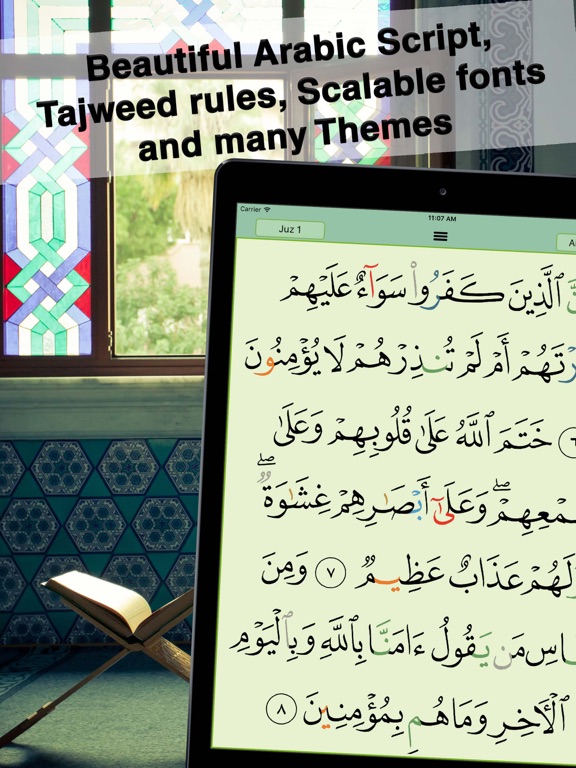 Beautiful Arabic Script,
Tajweed rules, Scalable fonts
and many Themes
Carrier
11:07 AM
Juz 1
نَّ ٱلَّذِينَ كَفَرُوا۟ سَوَآءٌ عَلَيْهِمْ
رْتَهُمْ أَمْ لَمْ تُنذِرْهُمْ لَا يُؤْمِنُونَ
٦ خَتَمَ ٱللَّهُ عَلَىٰ قُلُوبِهِمْ وَعَلَىٰ
مْعِهِمْ ۖ وَعَلَىٰٓ أَبْصَـٰرِهِمْ غِشَـٰوَةٌ ۖ
لَهُمْ عَذَابٌ عَظِيمٌ ٧ وَمِنَ
اسِ مَن يَقُولُ ءَامَنَّا بِٱللَّهِ وَبِٱلْيَوْمِ
ٱلْـَٔاخِرِ وَمَا هُم بِمُؤْمِنِينَ ٨